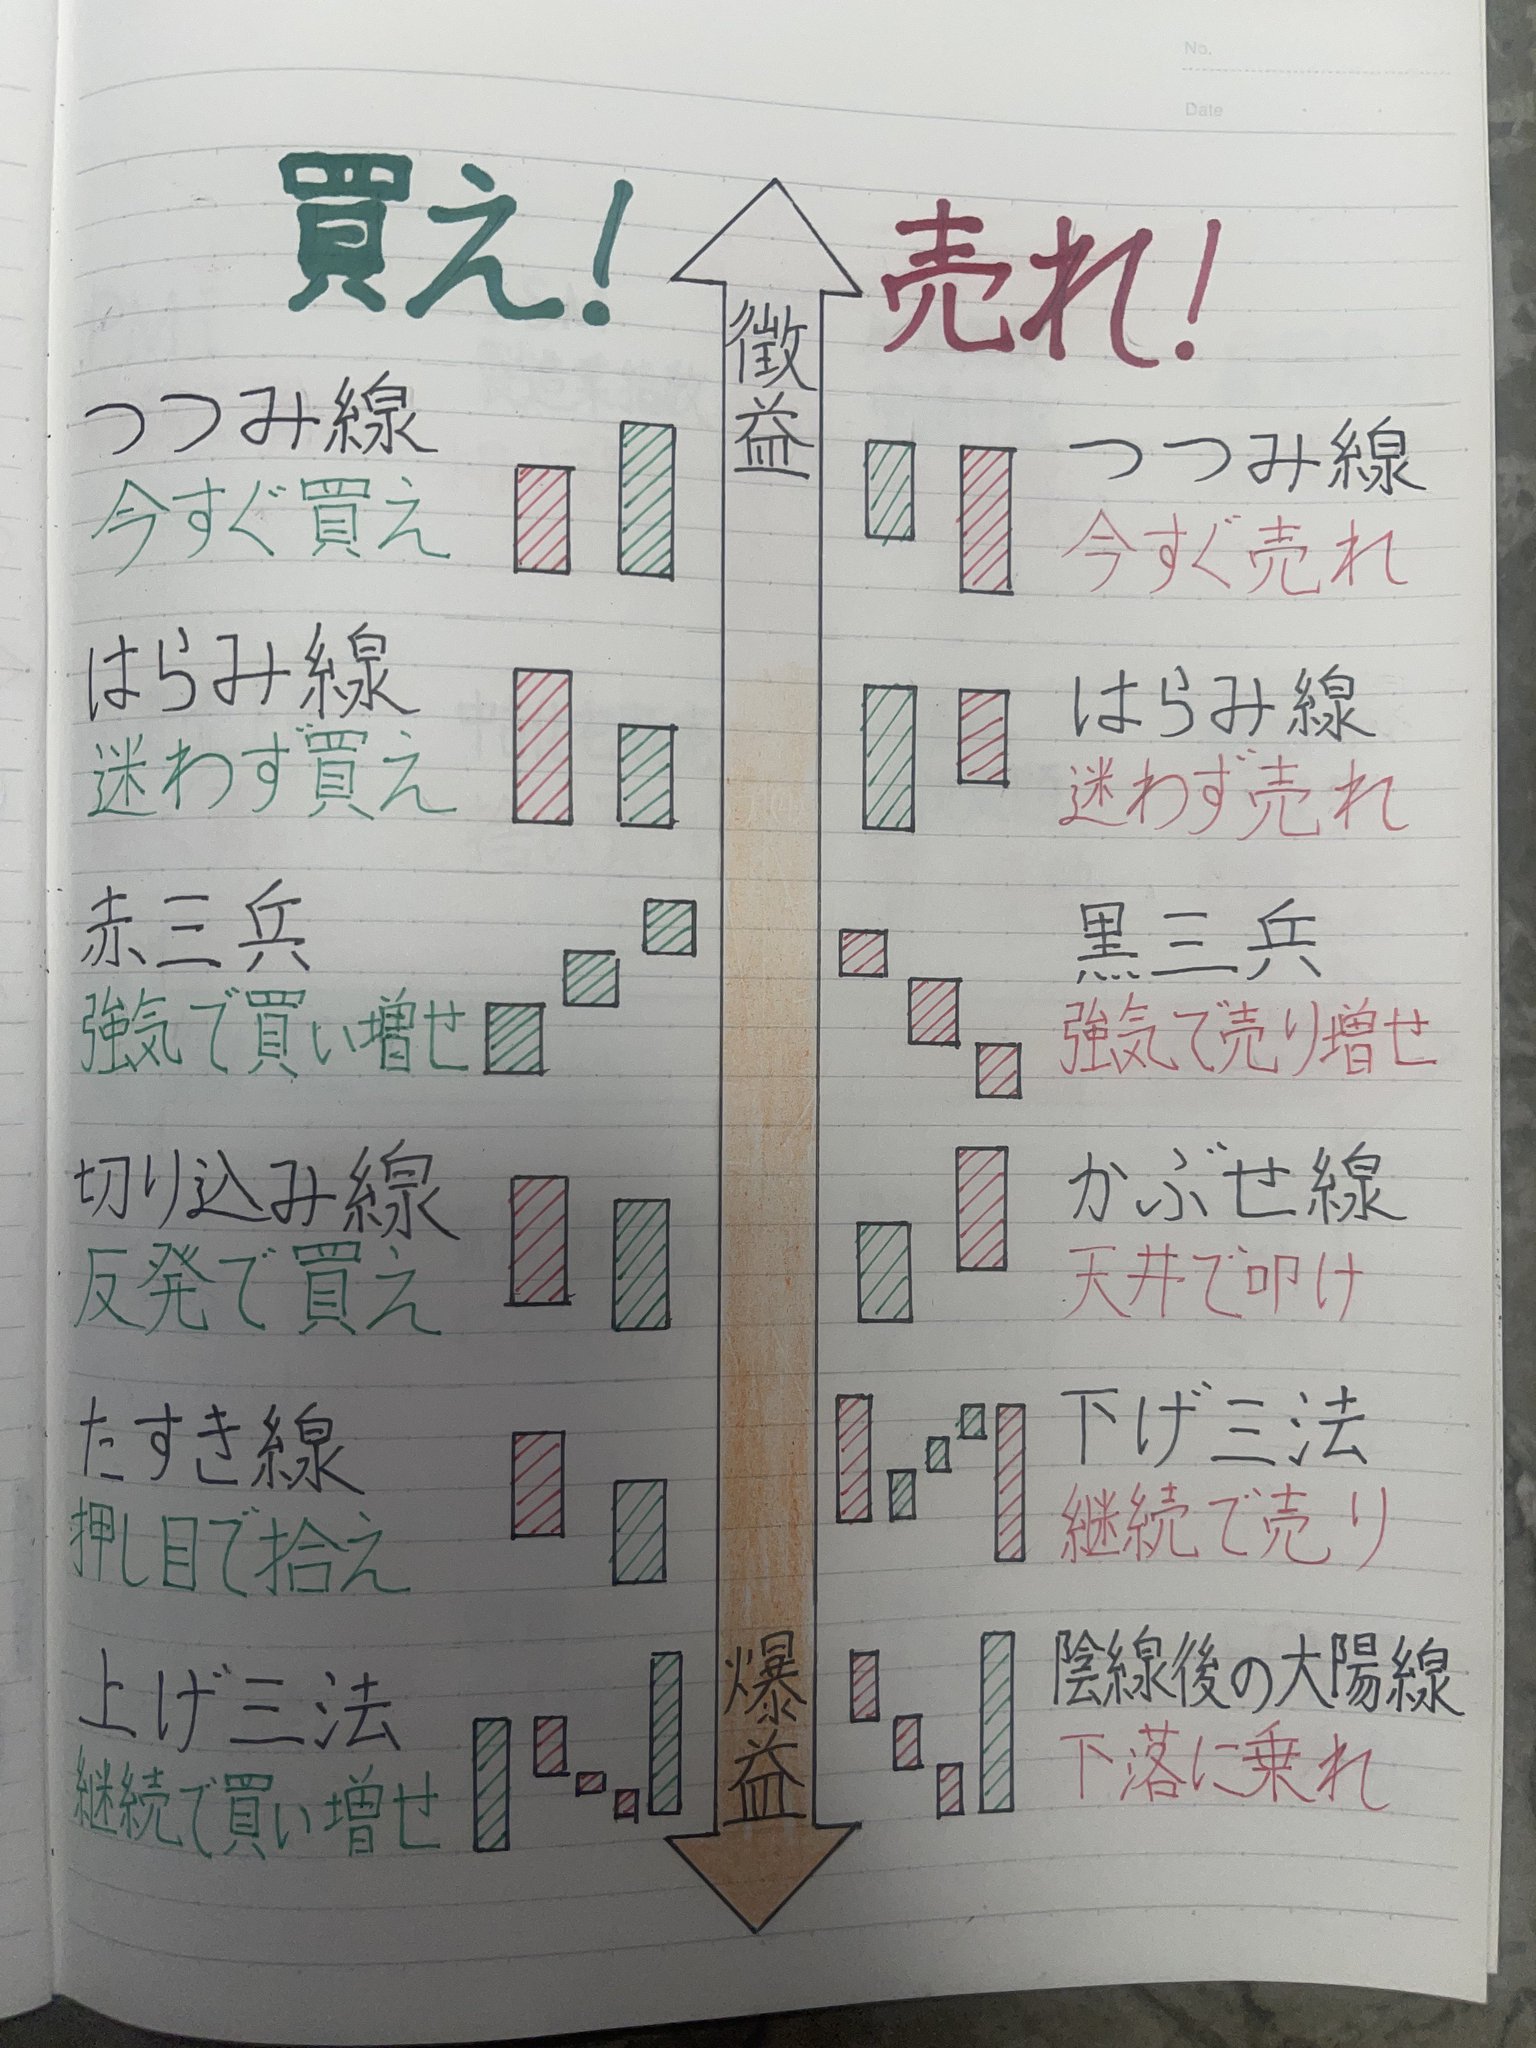 No.
Date
買え!
売れ!
徴益
つつみ線
今すぐ買え
はらみ線
迷わず買え
赤三兵
強気で買い増せ
切り込み線
反発で買え
たすき線
押し目で拾え
上げ三法
継続で買い増せ
つつみ線
今すぐ売れ
はらみ線
迷わず売れ
黒三兵
強気で売り増せ
かぶせ線
天井で叩け
下げ三法
継続で売り
陰線後の大陽線
下落に乗れ
爆益